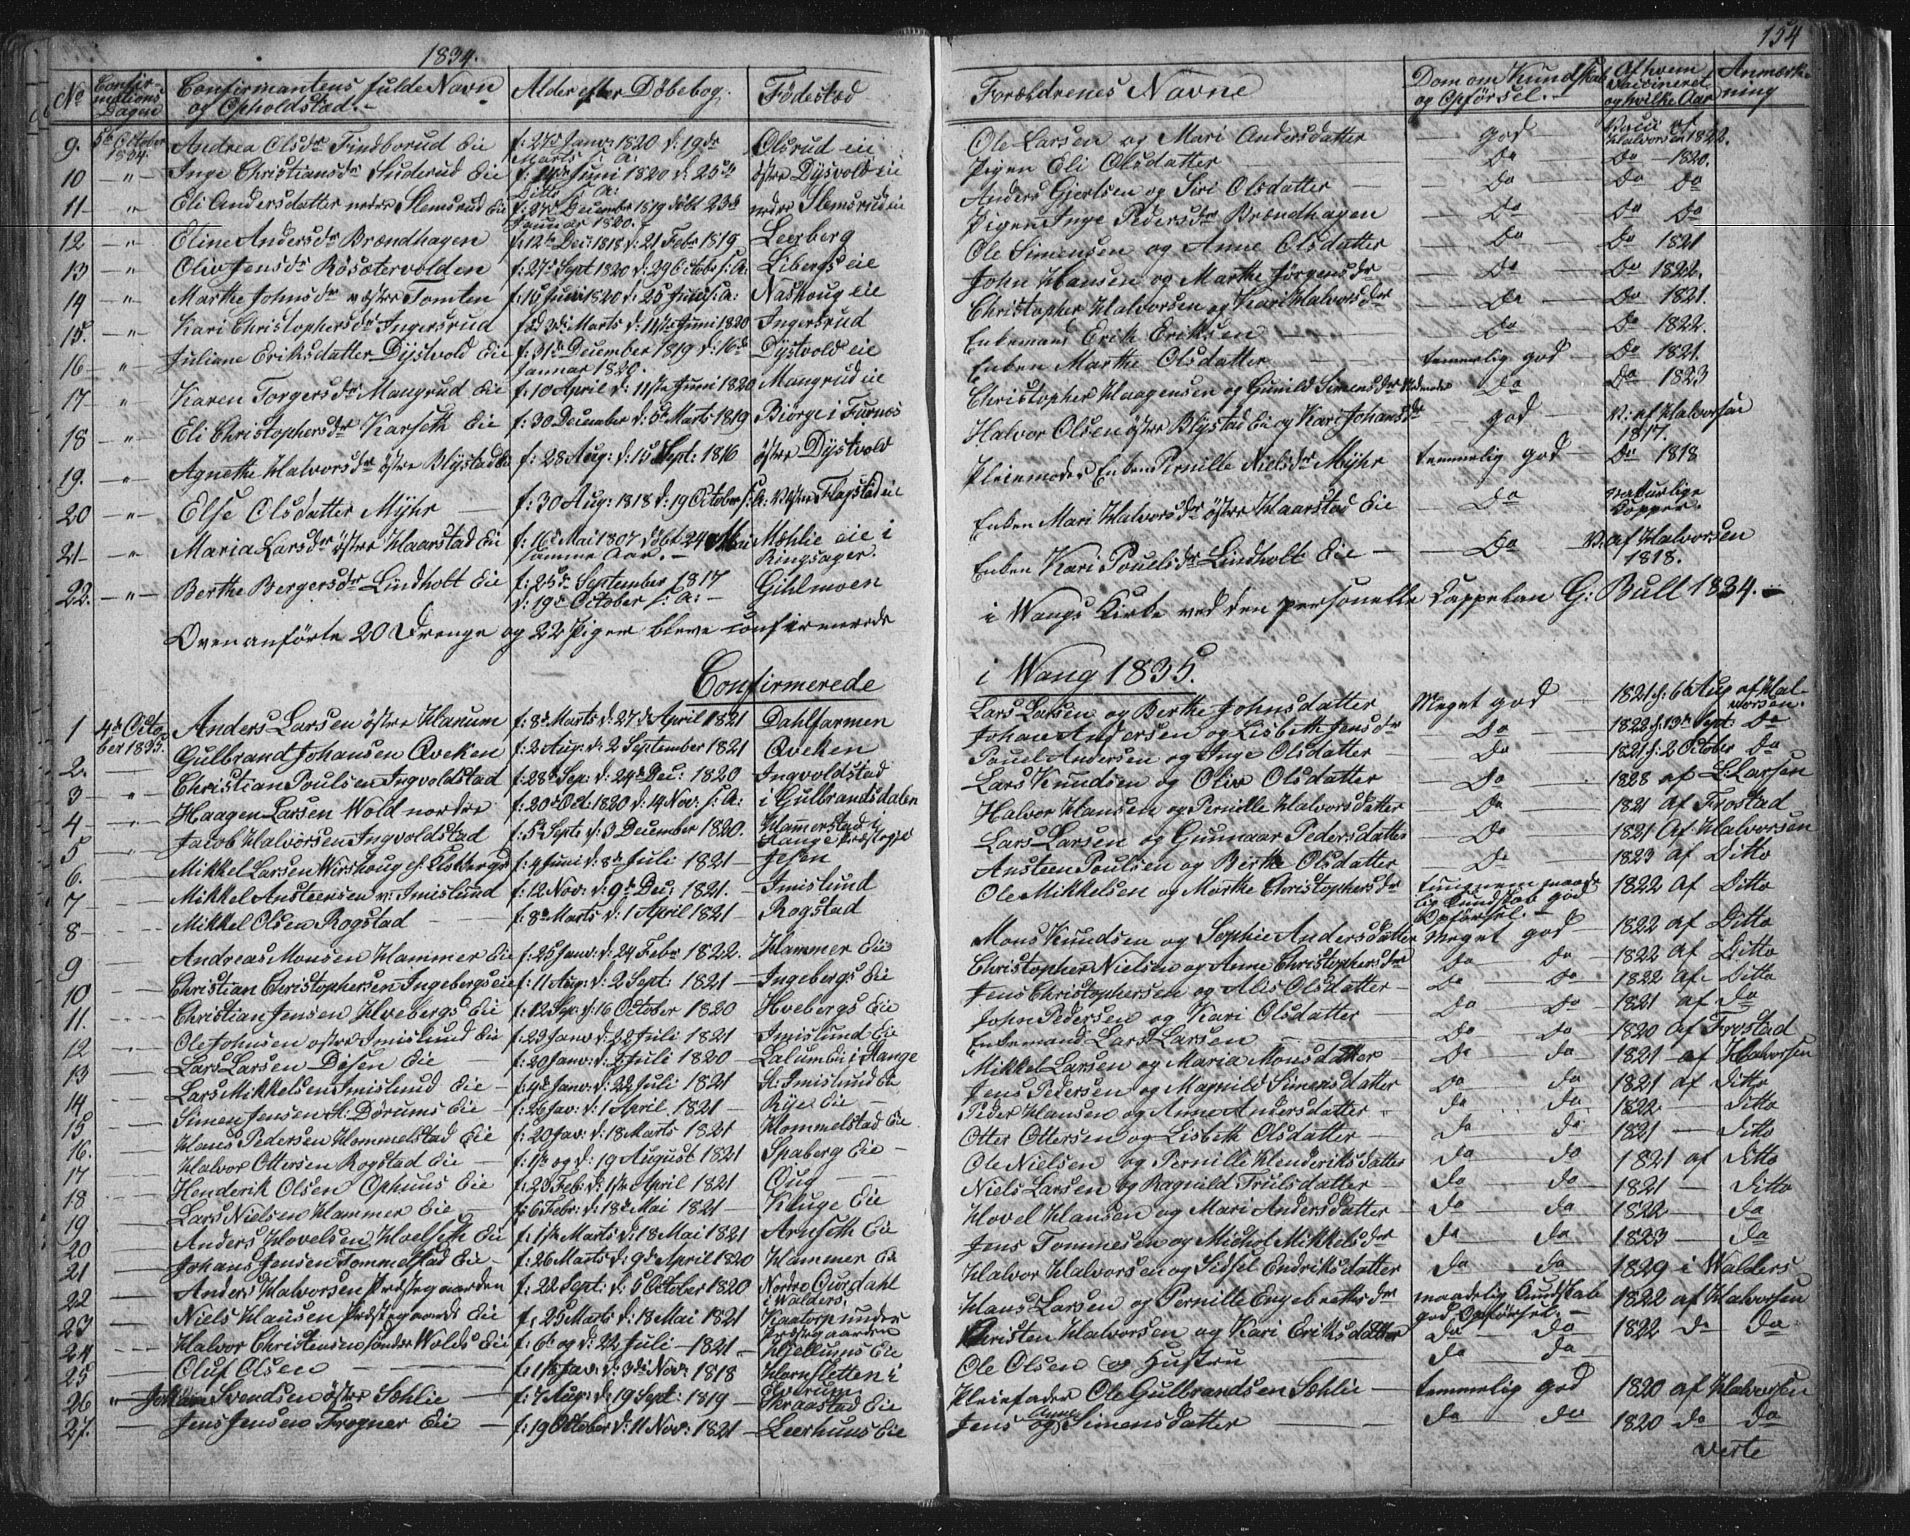 1834.
154
No Confirmations Dagen Confirmantens fulde Navn og Opholdstad. Alder efter Döbebog. Födestad Forældrenes Navne Dom om Kundskab og Opförsel. Af hvem Vaccineret og hvilke Aar Anmærkning
9. 5te October 1834. Andrea Olsdr Findborud Eie f: 27de Janr 1820 d: 19de Marts s. A: Olsrud eie Ole Larsen og Mari Andersdatter god Vacc: af Halvorsen 1822.
10 —"— Inge Christiansdr Suderud Eie f: 14de Juni 1820 d: 25de Ditto s. A: östre Dysvold eie Pigen Eli Olsdatter Do Do 1820.
11 —"— Eli Andersdatter nedre Slemsrud Eie f: 27de December 1819 döbt 23de Januar 1820. nedre Slemsrud eie Anders Gjertsen og Siri Olsdatter Do Do Do
12 —"— Eline Andersdr Brændhagen f: 12te Dec: 1818 d: 21 Febr 1819 Leerberg Pigen Inge Pedersdr Brændhagen Do Do Do
13 —"— Oliv Jensdr Rösætervolden f: 27de Sept 1820 d: 29 October s: A: Libergs eie Ole Simensen og Anne Olsdatter Do Do 1821
14 —"— Marthe Johnsdr vestre Tomten f: 10 Juni 1820 d: 25 Juni s: A: Naskoug eie John Hansen og Marthe Jörgensdr Do Do 1822.
15. —"— Kari Christophersdr Ingersrud f: 23de Marts d: 11te Juni 1820 Ingersrud Christopher Halvorsen og Kari Halvorsdr Do Do 1821.
16 —"— Juliane Eriksdatter Dystvold Eie f: 31te December 1819 d: 16de Januar 1820. Dystvold eie Enkemand Erik Eriksen Do Do 1822.
17 —"— Karen Torgersdr Mangrud Eie f: 10 April d: 11te Juni 1820 Mangrud eie Enken Marthe Olsdatter temmelig god Do 1821.
18 —"— Eli Christophersdr Karseth Eie f: 30 December d: 5te Marts 1819 Biörge i Furnes Christopher Haagensen og Gunild Simensdr Do Do 1823
19. —"— Agnethe Halvorsdr östre Blystad Eie f: 28 Aug: d: 15 Sept: 1816 östre Dystvold Halvor Olsen östre Blystad Eie og Kari Johansdr god V: af Halvorsen 1817.
20 —"— Else Olsdatter Myhr f: 30 Aug: 1818 d: 19 October s: A: Vestre Flagstad eie Pleiemoder Enken Pernille Nielsdr Myhr temmelig god Do 1818
21 —"— Maria Larsdr östre Haarstad Eie f: 16de Mai 1807 döbt 24 Mai samme Aar. Mæhlie eie i Ringsager. Enken Mari Halvorsdr östre Haarstad Eie Do naturlige Kopper.
22. —"— Berthe Bergersdr Lindholt Eie f: 25de September 1817 d: 19de October s: A: Gihlmoen Enken Kari Pouelsdr Lindholt Eie Do V. af Halvorsen 1818.
Ovenanförte 20 Drenge og 22 Piger bleve confirmerede i Wangs Kirke ved den personelle Cappelan G: Bull 1834.
Confirmerede i Wang 1835.
1 4de October 1835. Anders Larsen östre Hanum f: 8de Marts d: 27de April 1821 Dahlfarmen Lars Larsen og Berthe Johnsdatter Meget god 1821 f: 6te Aug af Halvorsen.
2. Gulbrand Johansen Qveken f: 2 Aug: d: 2 September 1821 Qveken Johan Andersen og Lisbeth Jensdr Do 1822 f: 13de Sept Do
3 " Christian Poulsen Ingvoldstad f: 28de Sep: d: 24de Dec: 1820 Ingvoldstad Pauel Andersen og Inge Olsdatter Do 1821 f: 2 October Do
4 " Haagen Larsen Wold nordre f: 20de Oct: 1820 d: 14 Nov: s: A: i Gulbrandsdalen Lars Knudsen og Oliv Olsdatter Do 1828 af L: Larsen
5 Jacob Halvorsen Ingvoldstad f: 5te Septe d: 3 December 1820. Hammerstad i Hange Præstegd Halvor Hansen og Pernille Halvorsdatter Do 1821 af Frostad
6. Mikkel Larsen Wirshoug f: 4 Juni d: 8de Juli 1821 Jesen Lars Larsen og Gunnaar Pedersdatter Do 1821 Af: Halvorsen
7 Mikkel Ansteensen v: Imislund f: 12 Nov: d: 9de Dec: 1821. Imislund Ansteen Poulsen og Berthe Olsdatter Do 1823 af Ditto
8 Mikkel Olsen Rogstad f: 8de Marts d: 1 April 1821 Rogstad Ole Mikkelsen og Marthe Christophersdr Kundskab god Opförsel. 1822 Af Ditto
9 Andreas Monsen Hammer Eie f: 25 Janv: d: 24 Febr 1822. Hammer Eie Mons Knudsen og Sophie Andersdatter Meget god 1822 af Ditto
10 Christian Christophersen Ingebergs eie f: 11 Aug: d: 2 Sept: 1821 Ingebergs Eie Christopher Nielsen og Anne Christophersdr Do Do 1822 af Ditto
11. Christian Jensen Hvebergs Eie f: 12 Sep: d: 16 October 1820 Hvebergs Eie Jens Christophersen og Alis Olsdatter Do Do 1822 af Ditto
12 Ole Johnsen östre Imislund Eie f: 23 Janv: d: 22 Juli 1821 Imislund Eie John Pedersen og Kari Olsdatter Do Do 1821 af Do
13 Lars Larsen Disen Eie f: 20 Janv: d: 2 Juli 1820 Lalumbu i Hange Enkemand Lars Larsen Do Do 1820 af Frostad
14 Lars Mikkelsen Imislund Eie f: 4de Janv: d: 22 Juli 1821 St: Imislund Eie Mikkel Larsen og Maria Monsdatter Do Do 1821 af Halvorsen
15 Simen Jensen St: Dörums Eie f: 26 Jav: d: 1 April 1821 Rye Eie Jens Pedersen og Magnild Simensdatter Do Do 1821 af Ditto
16. Hans Pedersen Hommelstad Eie f: 20 Jav: d: 18 Marts 1821 Hommelstad Eie Peder Hansen og Anne Andersdatter Do Do 1822 Ditto
17 Halvor Ottersen Rogstad Eie f: 1te og d: 19 August 1821 Spaberg Eie Otter Ottersen og Lisbeth Olsdatter Do Do 1821 Ditto
18 Henderik Olsen Ophuus Eie f: 23 Feb: d: 1te April 1821 Oug Ole Nielsen og Pernille Henderiksdatter Do Do 1821 af Ditto
19 Lars Nielsen Hammer Eie f: 6 Febr: d: 18de Mai 1821 Kluge Eie Niels Larsen og Ragnild Truilsdatter Do Do 1821 Ditto
20 Anders Hovelsen Hoelseth Eie f: 1te Marts d: 18 Mai 1821 Arnseth Eie Hovel Hansen og Mari Andersdatter Do Do 1822 Do
21 Johans Jensen Tommelstad Eie f: 26 Marts d: 9de April 1820 Hammer Eie Jens Tommesen og Michol Mikkelsdr Do Do 1823 Do
22 Anders Halvorsen Præstegaarden f: 22 Sept: d: 5 October 1820 Nordre Ourdahl i Walders. Halvor Halvorsen og Sidsel Endriksdatter Do Do 1829 i Walders
23 Niels Hansen Præstegaards Eie f: 25 Marts d: 18 Mai 1821 Kaatorp under Præstegaarden Hans Larsen og Pernille Engebrethsdr maadelig Kundskab god Opförsel 1822 af Halvorsen
24 Halvor Christensen söndre Wolds Eie f: 6te og d: 22 Juli 1821 Hiellums Eie Christen Halvorsen og Kari Eriksdatter Do Do 1822 Do Do
25 Oluf Olsen f: 1te Jav: d: 3de Nov: 1818 Hornsletten i Elvdrum Ole Olsen og Hustru Do Do
26 " Svendsen östre Sæhlie f: 7 Aug: d: 19 Sept: 1819 Skraastad Eie Pleiefader Ole Gulbrandsen Sæhlie temmelig god 1820 af Halvorsen
27. Jens Jensen Frogner Eie f: 19 October d: 11 Nov: 1821 Leerhuus Eie Jens og Anne Simensdatter Do Do 1820 Do Do
verte